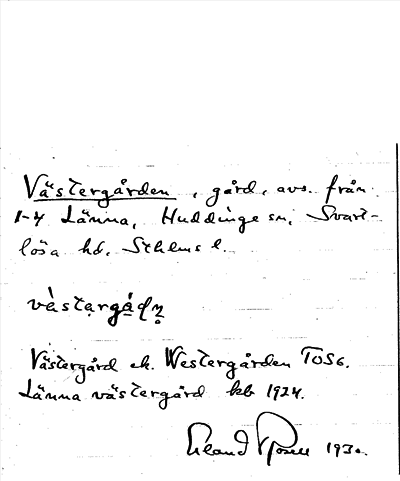 Västergården, gård, avs. från
1-4 Länna, Huddinge sn, Svart-
lösa hd, Sthlms l.
västargådn̥
Västergård ek. Westergården TOS6.
Länna västergård kb 1924.
Erland 1930.